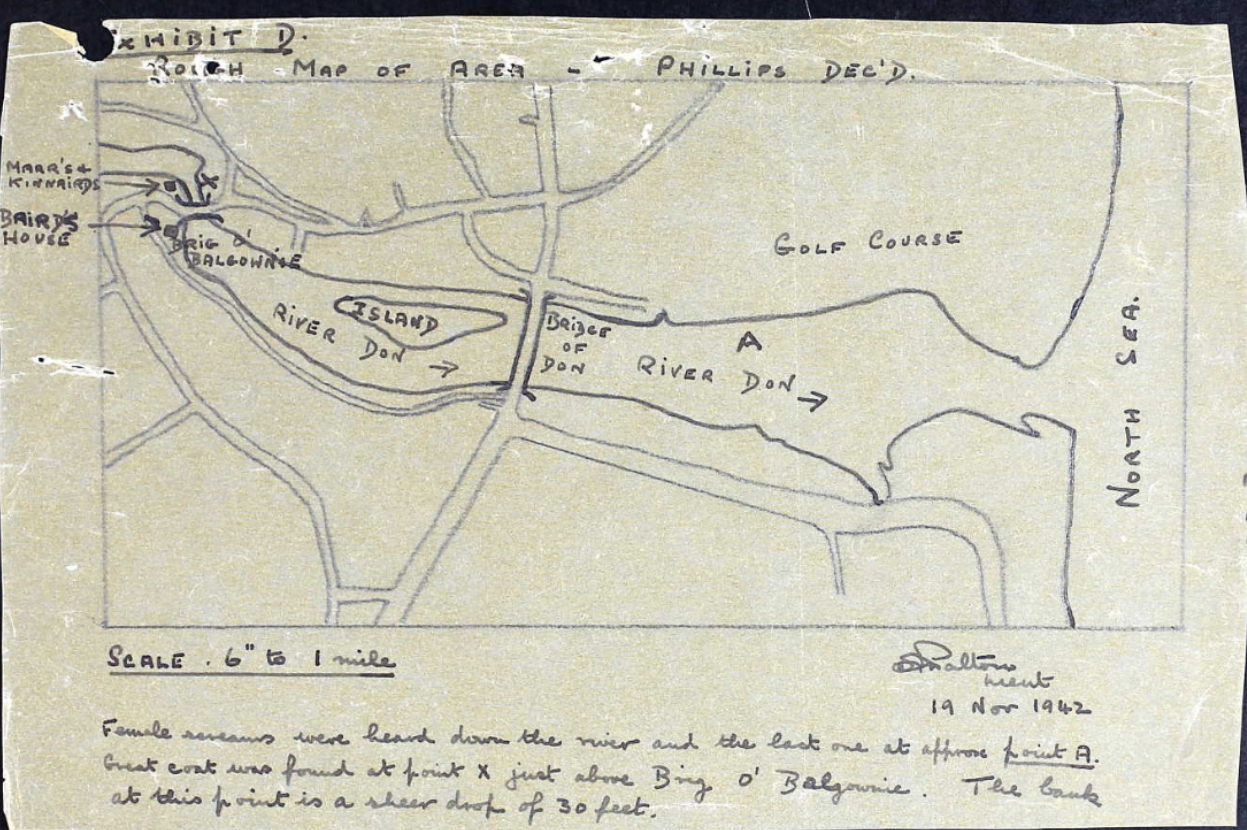 EXHIBIT D.
ROUGH MAP OF AREA - PHILLIPS DEC'D.
MARR'S &
KINNAIRDS
BAIRD'S
HOUSE
X
BRIG O'
BALGOWNIE
GOLF COURSE
ISLAND
RIVER
DON →
BRIDGE
OF
DON
A
RIVER DON →
NORTH SEA.
SCALE . 6" to 1 mile
Lieut
19 Nov 1942
Female screams were heard down the river and the last one at approx point A.
Great coat was found at point X just above Brig O' Balgownie. The bank
at this point is a sheer drop of 30 feet.